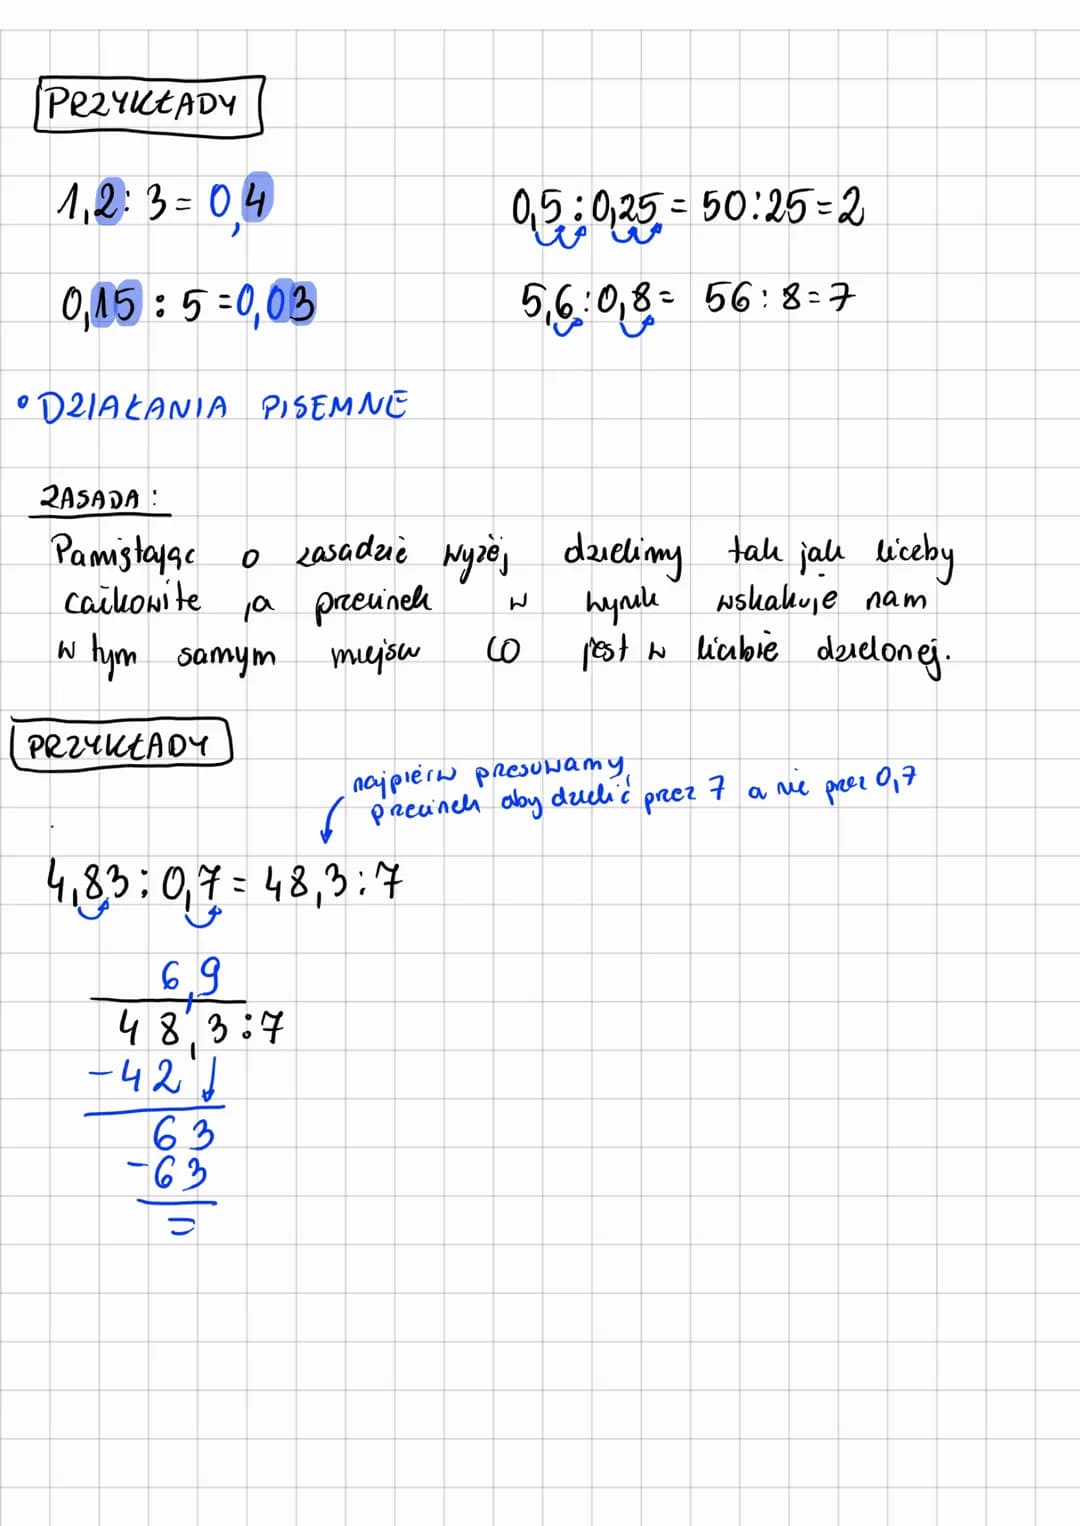 PRZYKŁADY
1,2 : 3 = 0,4
0,5 : 0,25 = 50 : 25 = 2
0,15 : 5 = 0,03
5,6 : 0,8 = 56 : 8 = 7
• DZIAŁANIA PISEMNE
ZASADA :
Pamiętając o zasadzie wyżej dzielimy tak jak liczby
całkowite , a przecinek w wynik wskakuje nam
w tym samym miejscu co jest w liczbie dzielonej.
PRZYKŁADY
najpierw przesuwamy
przecinek aby dzielić przez 7 a nie przez 0,7
4,83 : 0,7 = 48,3 : 7
6,9
48,3 : 7
-42
63
-63
=